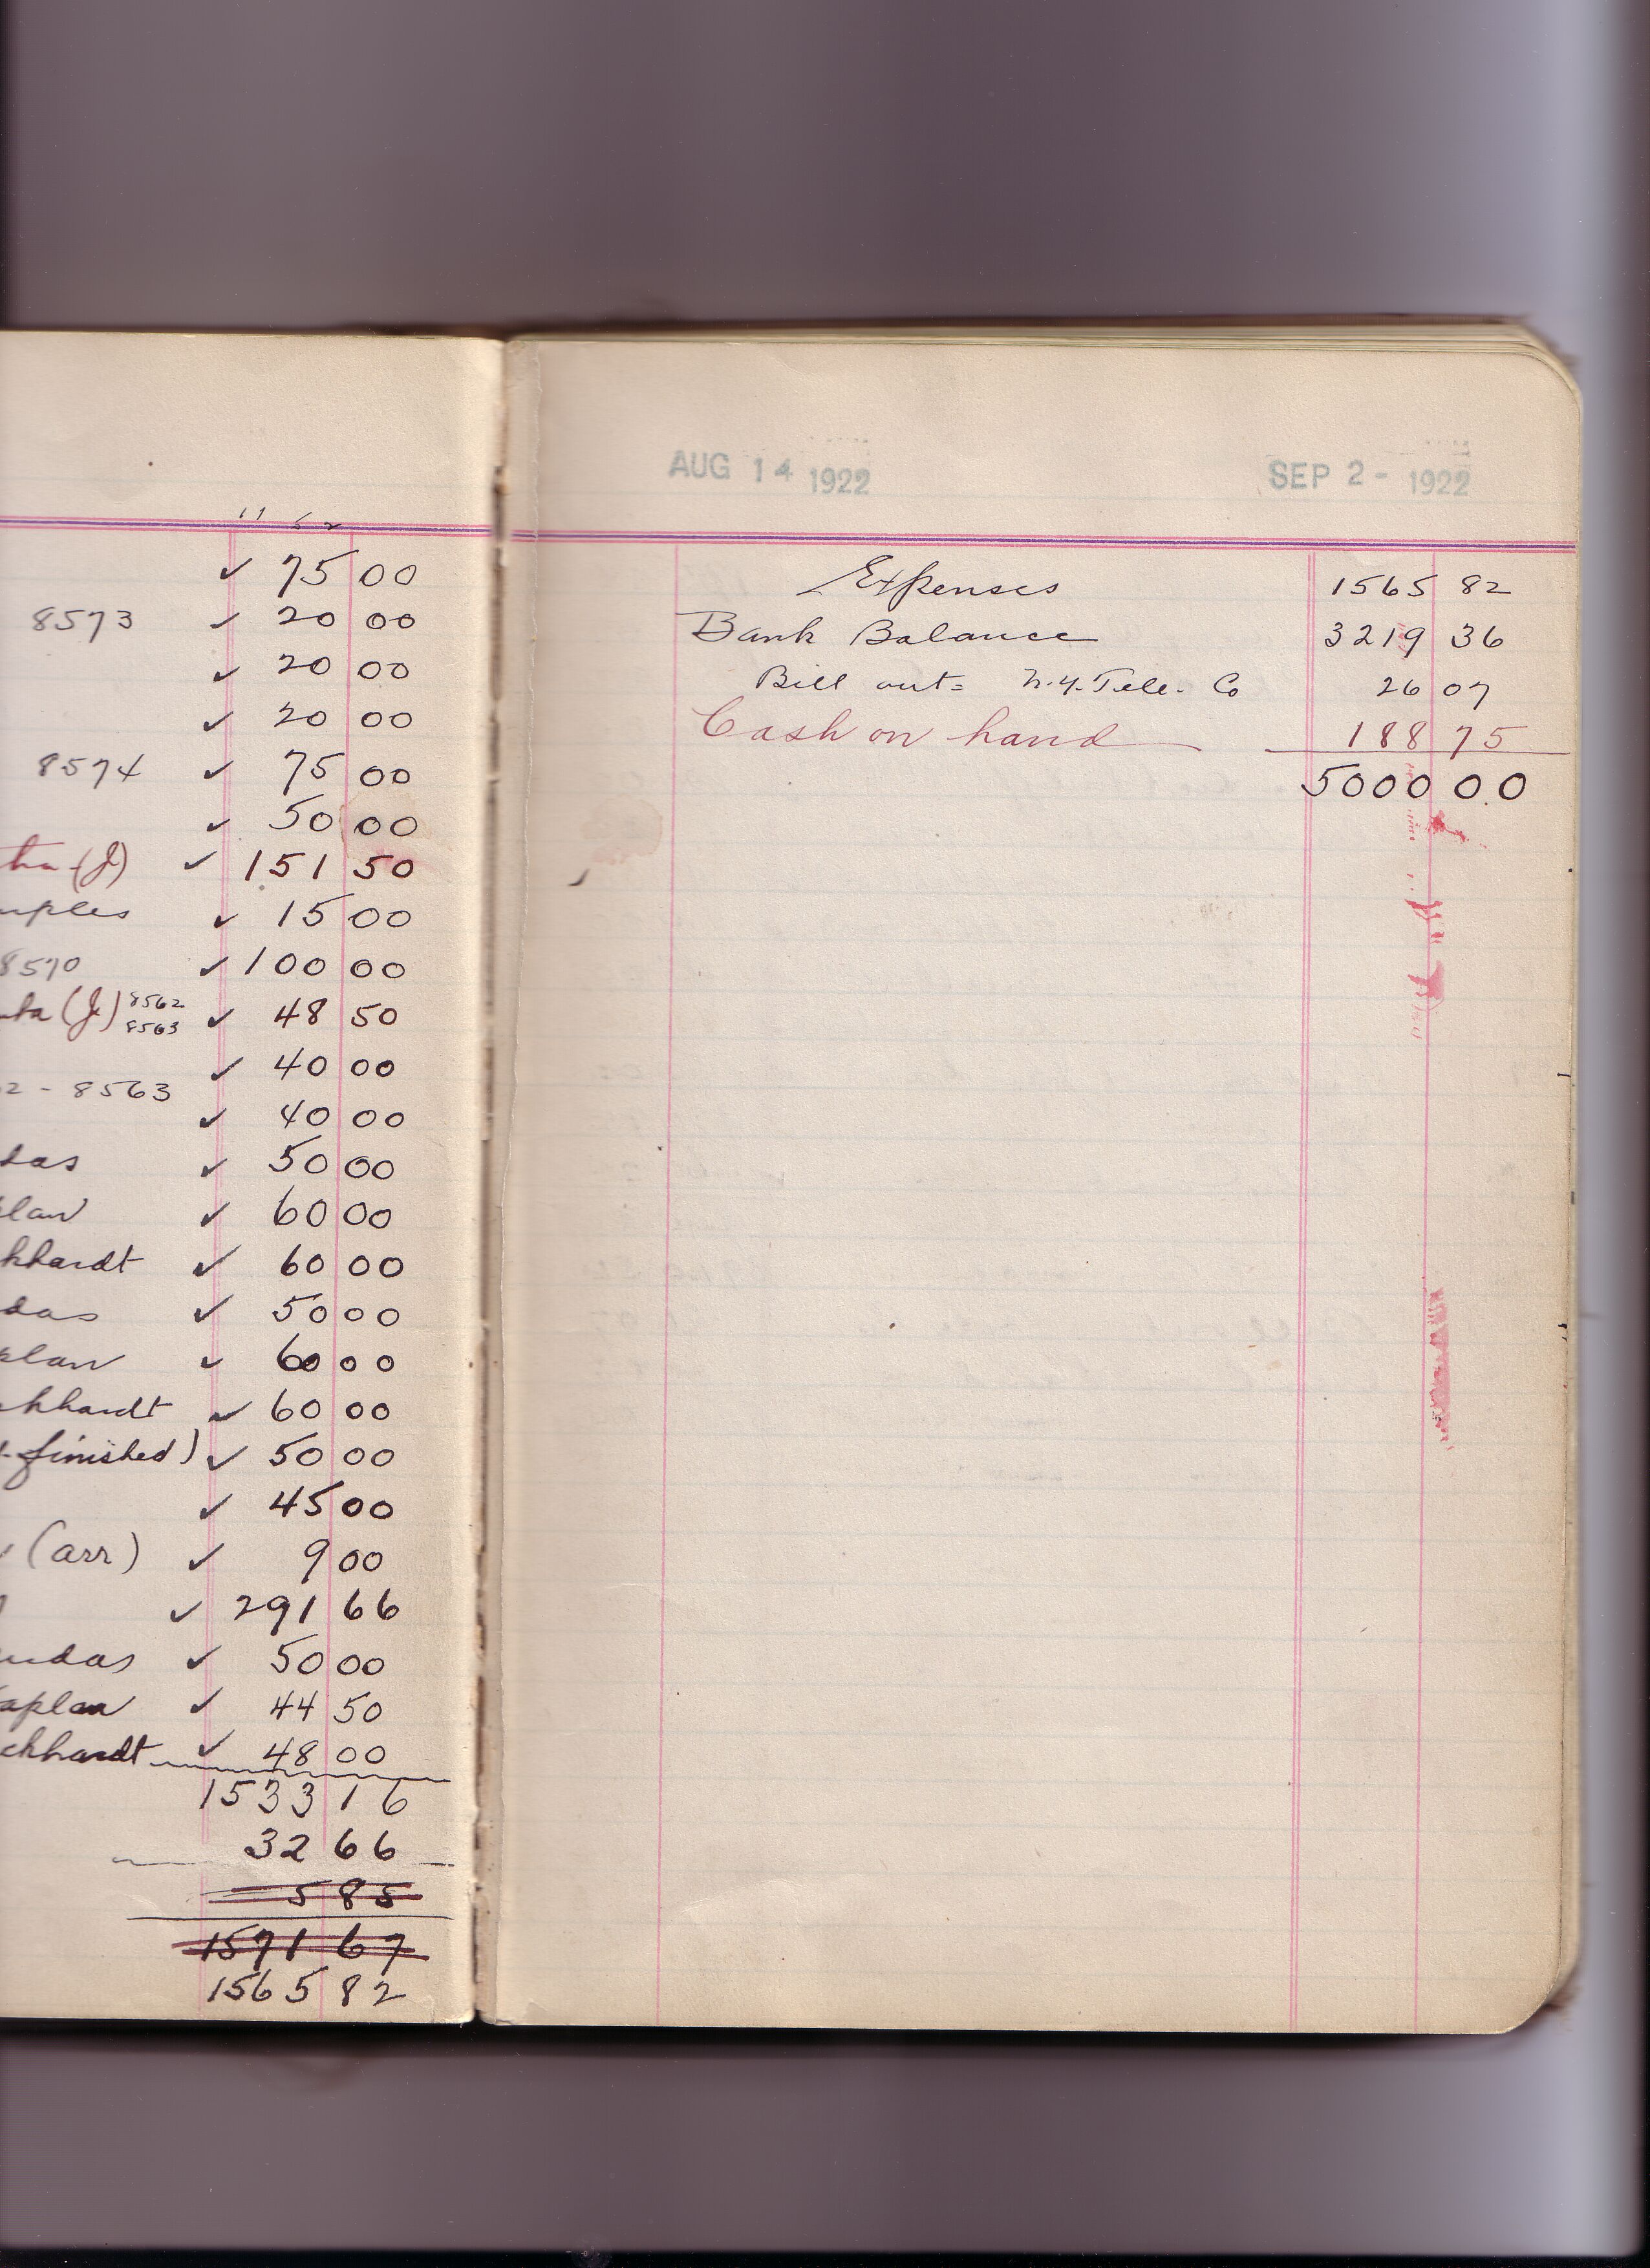 ✓ 75 00
8573 ✓ 20 00
✓ 20 00
✓ 20 00
8574 ✓ 75 00
✓ 50 00
(J) ✓ 151 50
mples ✓ 15 00
8570 ✓ 100 00
(J) 8562 8563 ✓ 48 50
✓ 40 00
2 - 8563
✓ 40 00
das ✓ 50 00
plan ✓ 60 00
khardt ✓ 60 00
das ✓ 50 00
plan ✓ 60 00
khardt ✓ 60 00
finished) ✓ 50 00
✓ 45 00
(arr) ✓ 9 00
✓ 291 66
udas ✓ 50 00
aplan ✓ 44 50
ckhardt ✓ 48 00
1533 16
32 66
5 85
1571 67
1565 82
AUG 14 1922 SEP 2 - 1922
Expenses 1565 82
Bank Balance 3219 36
Bill out = N.Y. Tele. Co 26 07
Cash on hand 188 75
5000 00